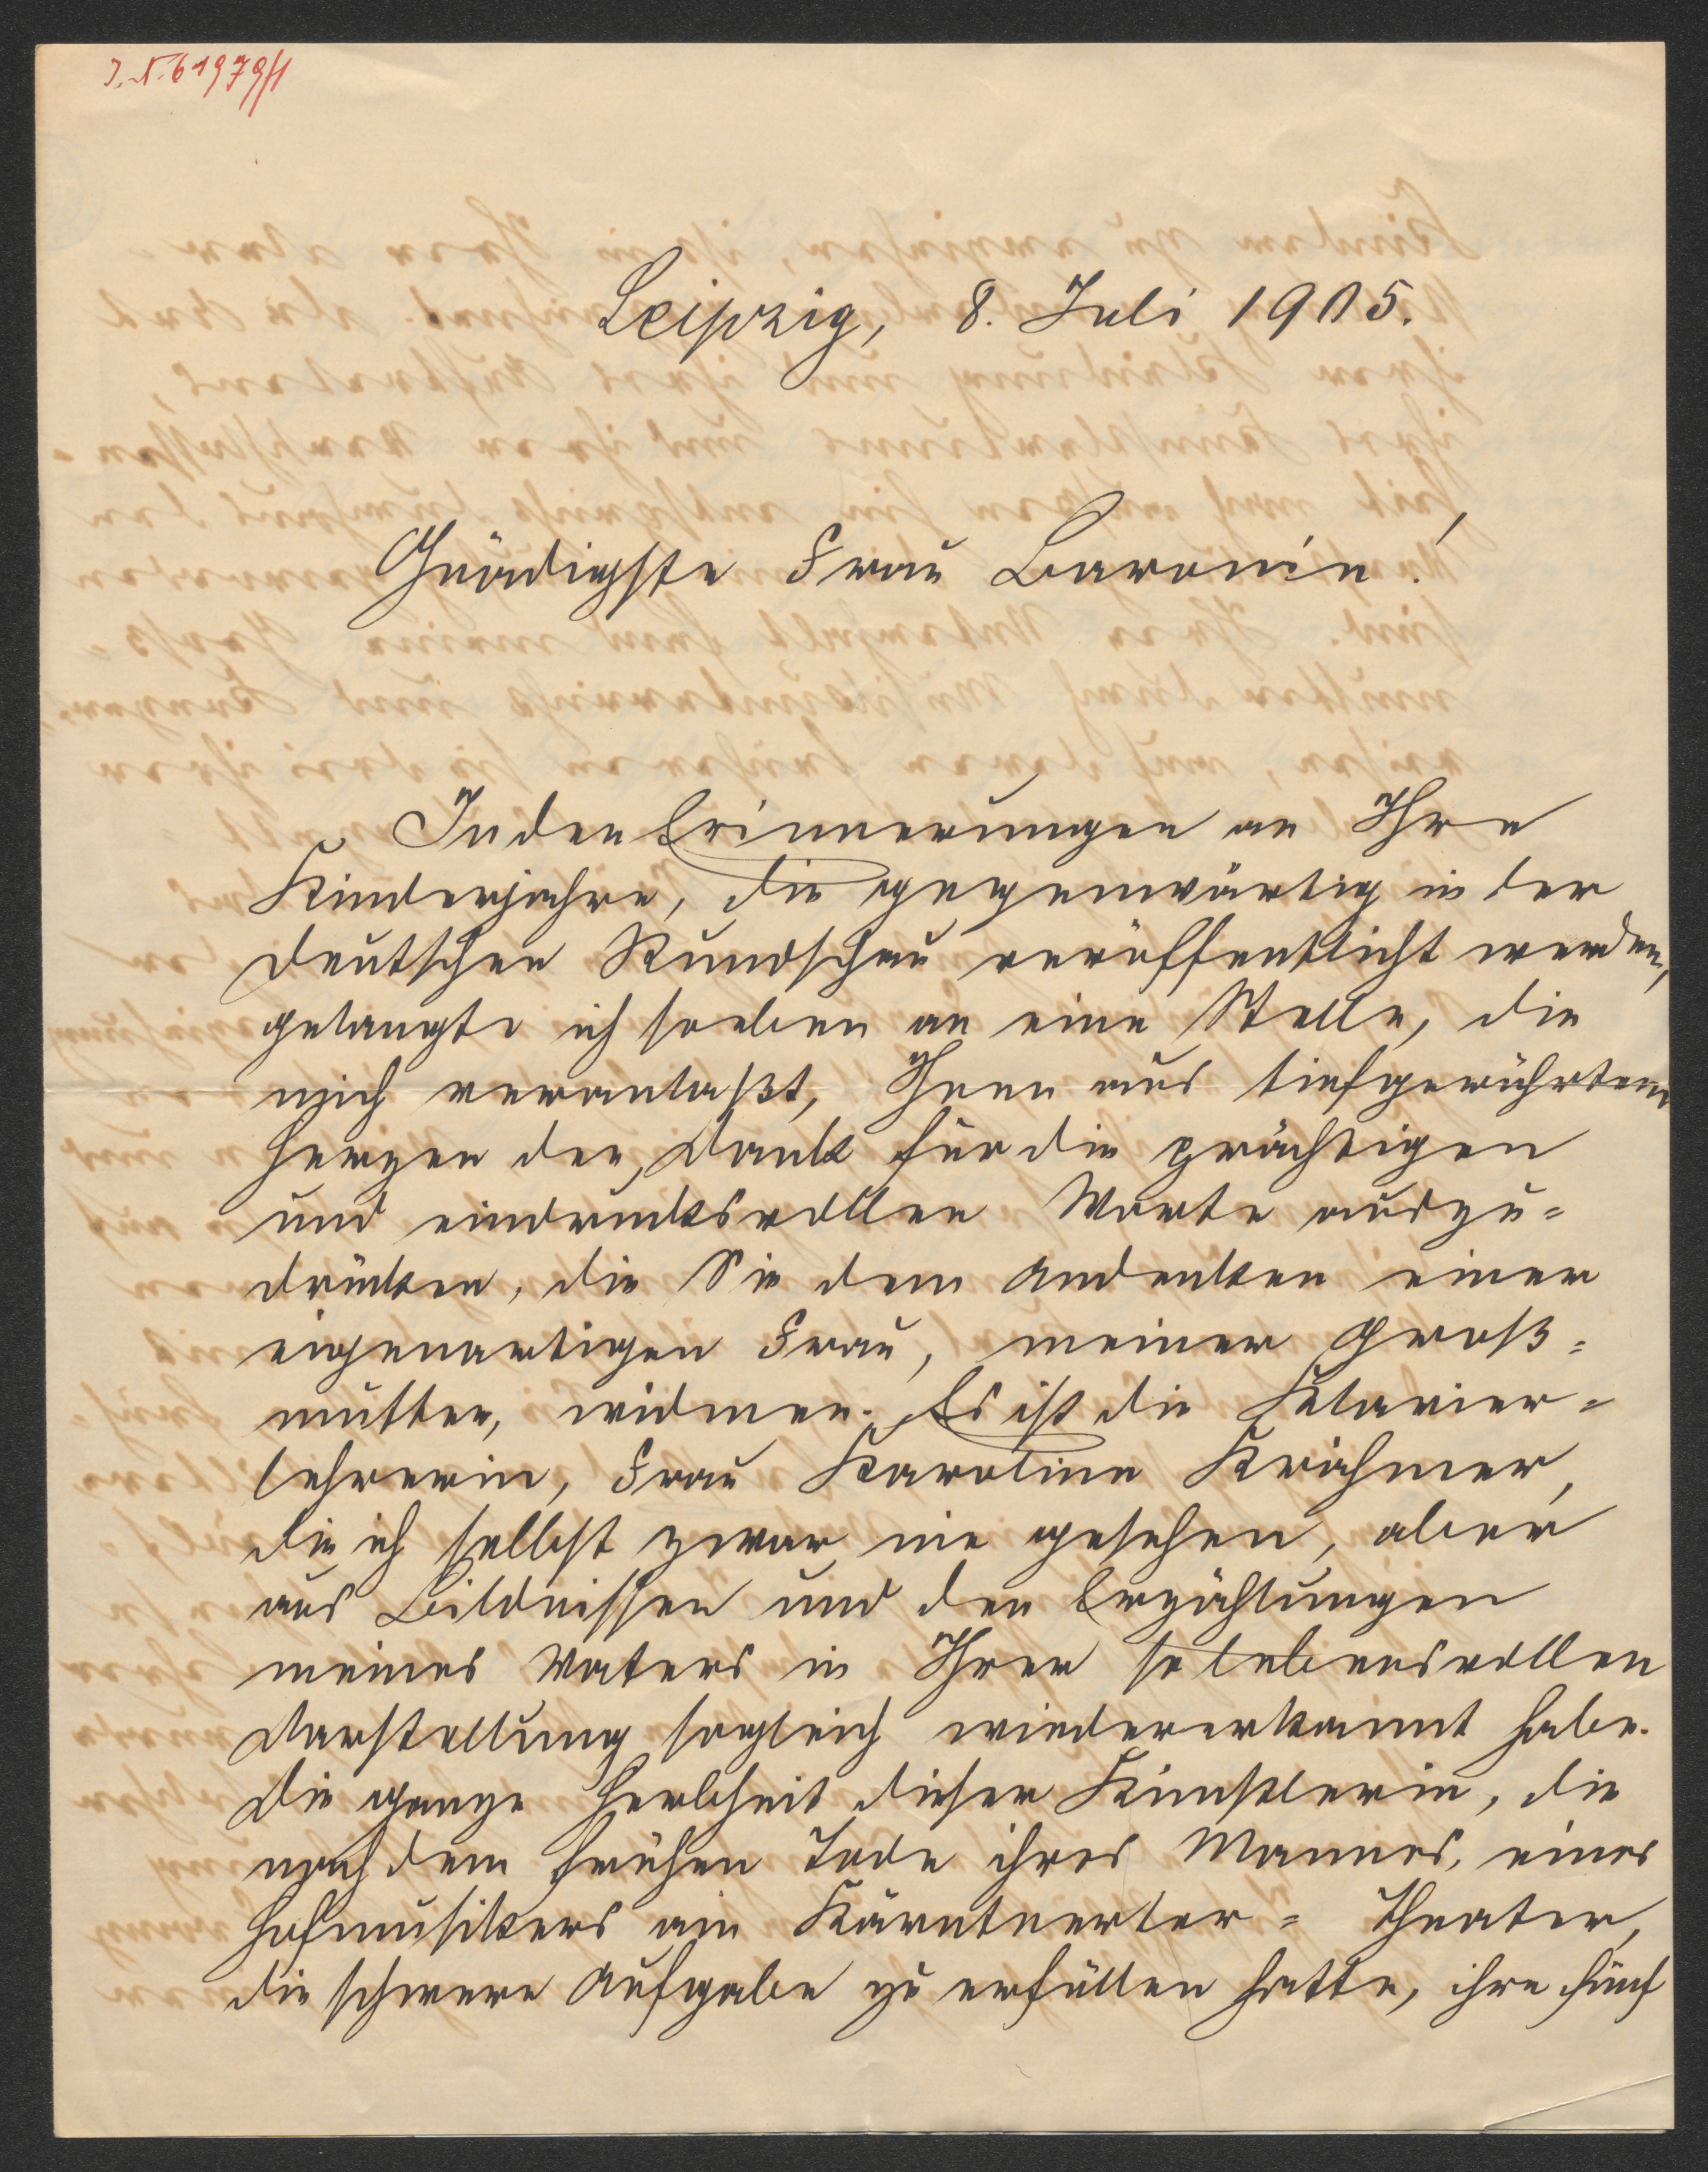 I. N. 61979/1
Leipzig, 8. Juli 1905.
Gnädigste Frau Baronin!
In den Erinnerungen an Ihre
Kinderjahre, die gegenwärtig in der
Deutschen Rundschau veröffentlicht werden,
gelangte ich soeben an eine Stelle, die
mich veranlaßt, Ihnen aus tiefgerührtem
Herzen den Dank für die prächtigen
und eindrucksvollen Worte auszu=
drücken, die Sie dem Andenken einer
eigenartigen Frau, meiner Groß=
mutter, widmen. Es ist die Klavier=
lehrerin, Frau Karoline Krähmer,
die ich selbst zwar nie gesehen, aber
aus Bildnissen und den Erzählungen
meines Vaters in Ihrer so lebensvollen
Darstellung sogleich wiedererkannt habe.
Die ganze Herbheit dieser Künstlerin, die
nach dem frühen Tode ihres Mannes, eines
Hofmusikers am Kärntnertor= Theater,
die schwere Aufgabe zu erfüllen hatte, ihre fünf